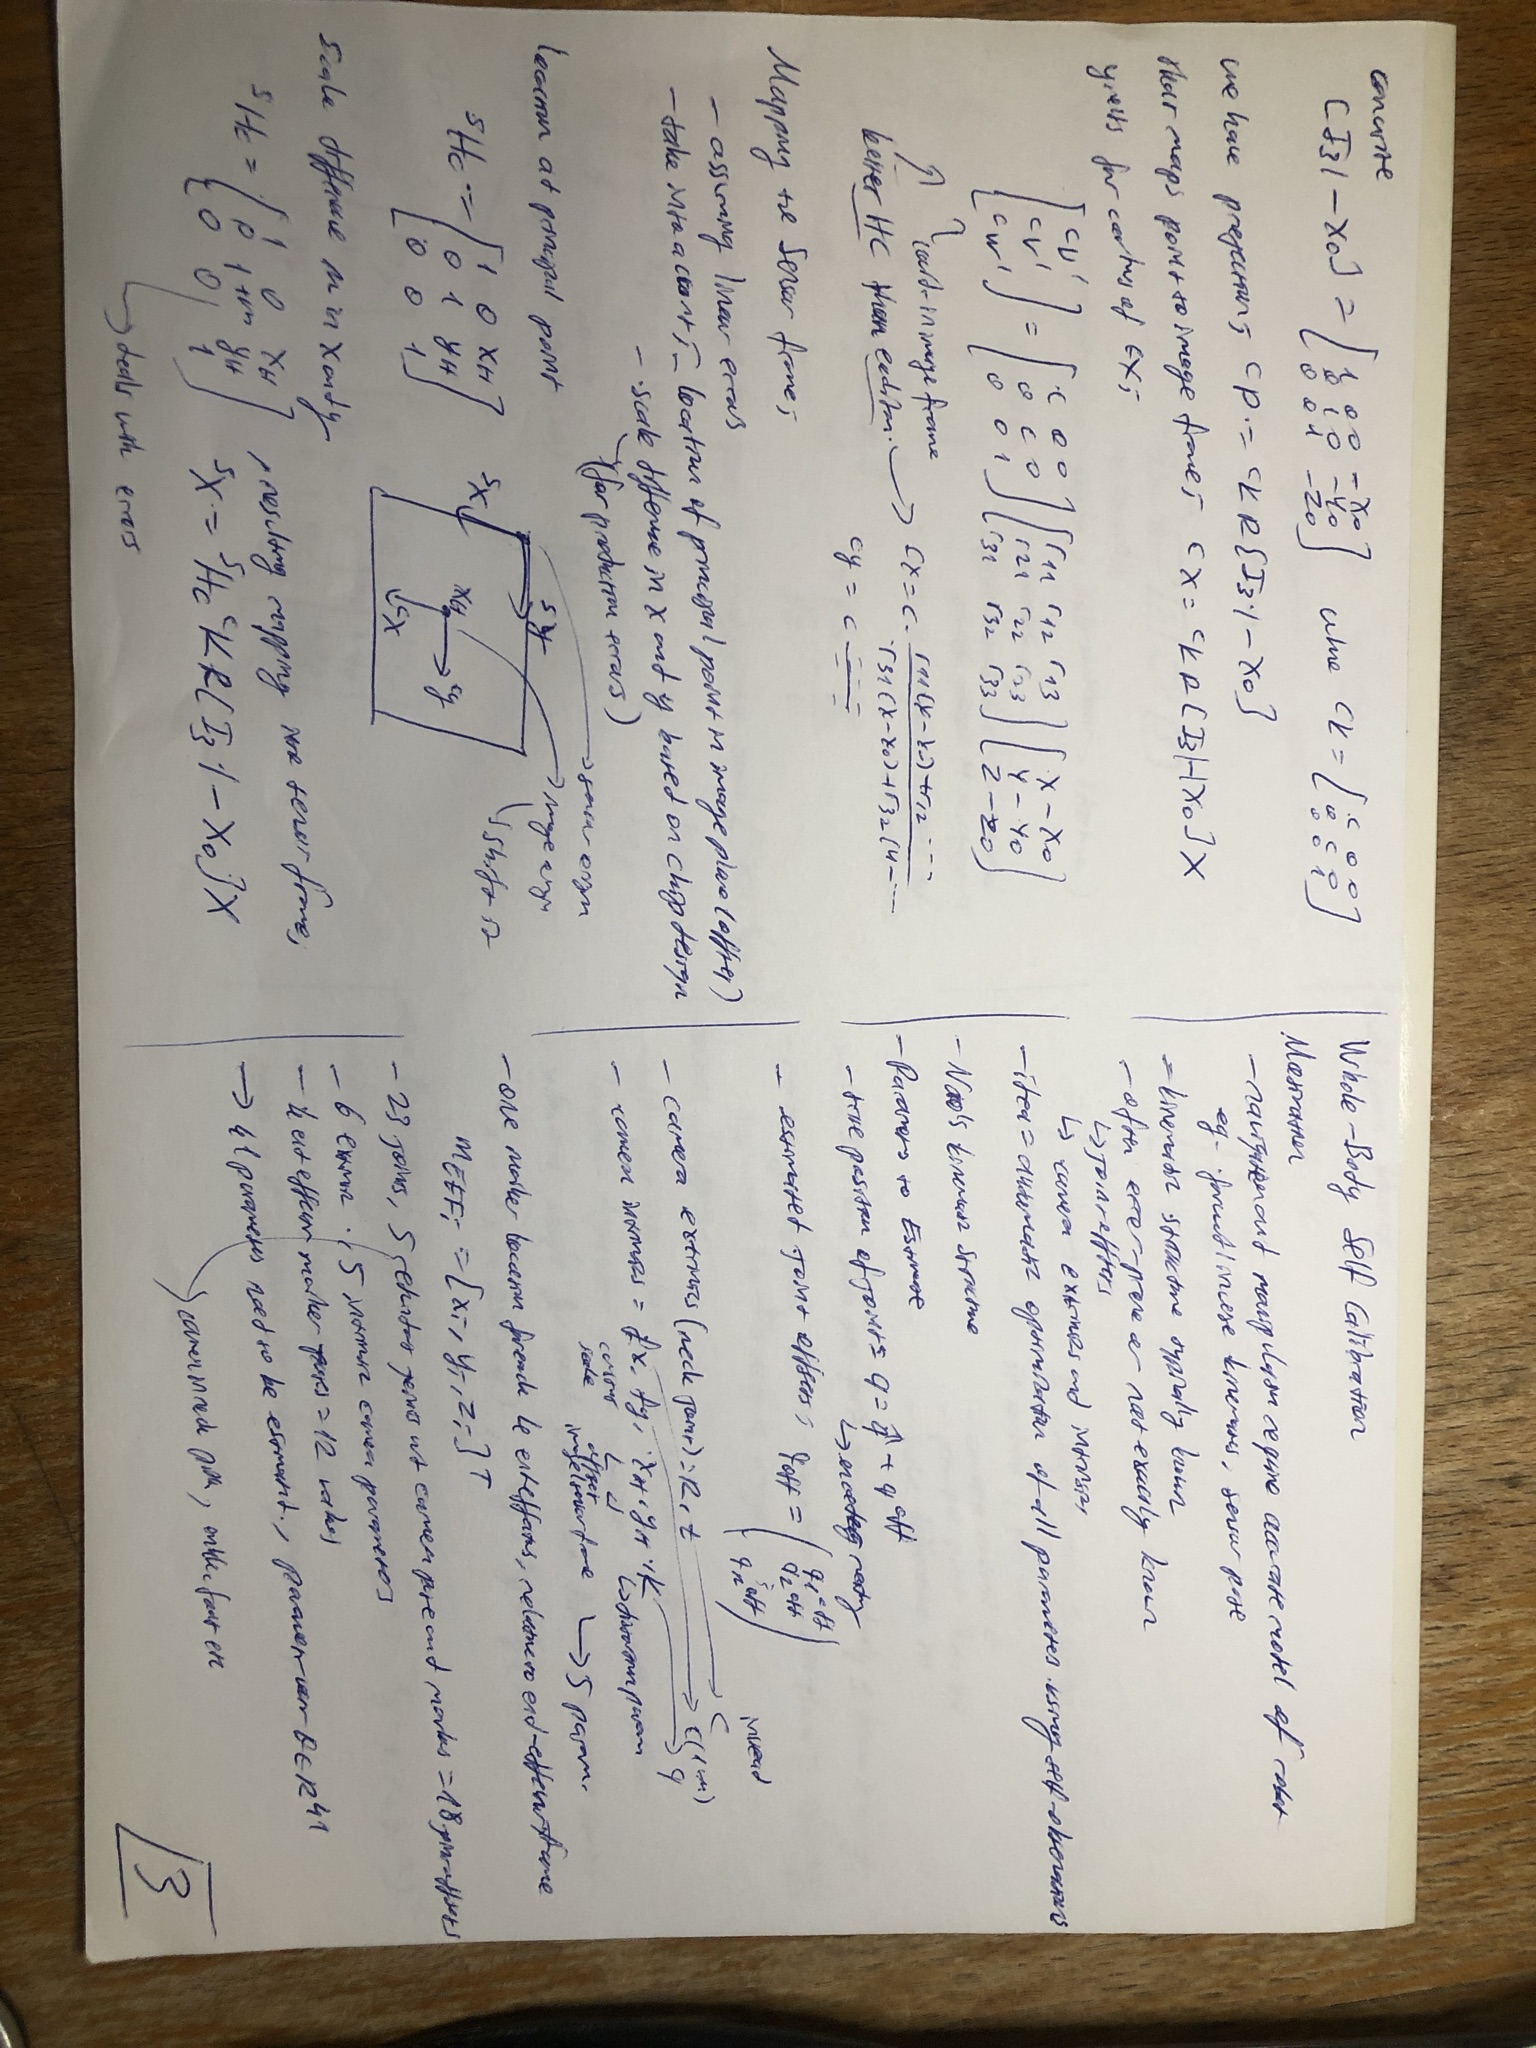 concrete
[I3 | -X0] = [1 0 0 -X0
0 1 0 -Y0
0 0 1 -Z0] where cK = [c 0 0
0 c 0
0 0 1]
we have projections cP = cK R [I3 | -X0]
that maps point to image frame; cx = cK R [I3 | -X0] X
yields for coords of cx;
[cu'
cv'
cw'] = [c 0 0
0 c 0
0 0 1] [r11 r12 r13
r21 r22 r23
r31 r32 r33] [X - X0
Y - Y0
Z - Z0]
coord. in image frame
better HC then euclidian. → cx = c · r11(X-X0)+r12 ... / r31(X-X0)+r32(Y- ...
cy = c
Mapping to Sensor frame;
- assuming linear errors
- take into account - location of principal point in image plane (offset)
- scale difference in x and y based on chip design
(for production errors)
location at principal point
sHc = [1 0 xH
0 1 yH
0 0 1]
sx
sy
xH
cy
cx
→ sensor origin
→ image origin
shift
Scale difference m in x and y
sHc = [1 0 xH
0 1+m yH
0 0 1]
resulting mapping into sensor frame;
sx = sHc cK R [I3 | -X0] X
→ deals with errors
Whole-Body Self Calibration
Motivation
- navigation and manipulation require accurate model of robot
eg. forward inverse kinematics, sensor pose
- kinematic structure typically known
- often errors are not exactly known
↳ joint offsets
↳ camera extrinsics and intrinsics,
- idea = automatic optimization of all parameters using self-observations
- Nao's kinematic structure
- Parameters to Estimate
- true position of joints = q = q̂ + q off
↳ encoder reading
- estimated joint offsets; qoff = (q1 off
q2 off
q12 off)
- camera extrinsics (neck joint) = R, t
- camera intrinsics = fx, fy, xH, yH, k
↳ distortion param
scale
offset
→ 5 param.
instead
c
c(1+m)
- one marker location for each k end-effectors, relative to end-effector frame
MEEFi = [xi, yi, zi]T
- 23 joints, 5 redundant joints wt camera pose and markers = 18 joint offsets
- 6 extrinsic, 5 intrinsic camera parameters
- k end effector marker pos = 12 values
→ 41 parameters need to be estimated, parameter vector θ ∈ R41
3